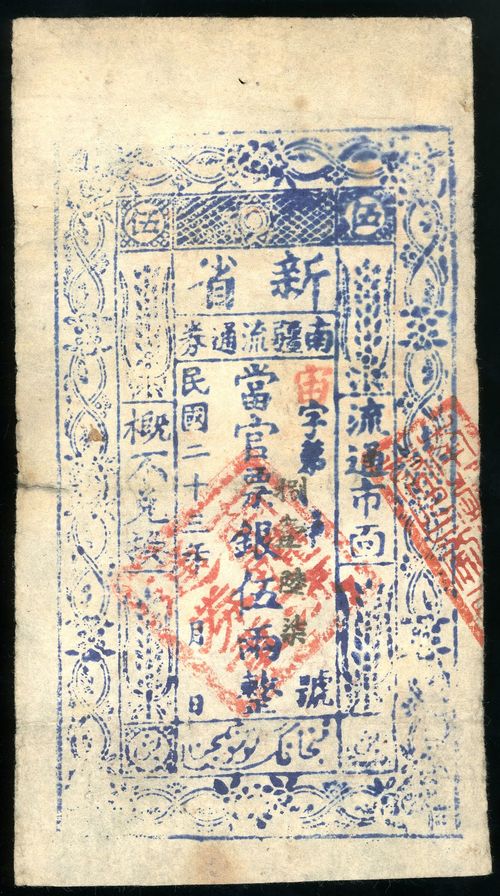 伍 伍
新省
南疆流通券
流通市面
宙字第捌壹陸柒號
當官票銀伍兩整
民國二十三年 月 日
概不兌換